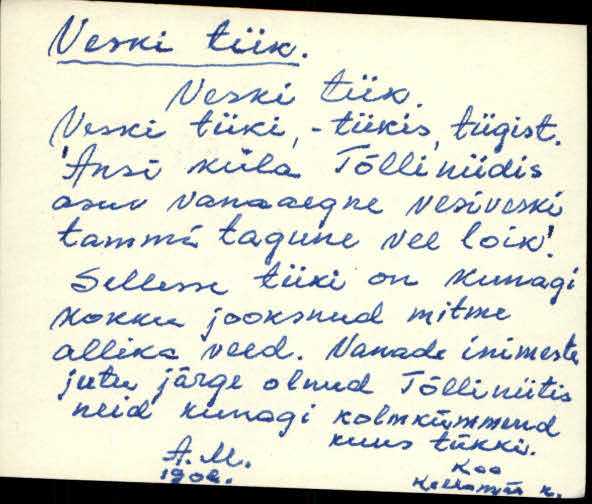 Veski tiik.
Veski tiik.
Veski tiiki, -tiikis, tiigist.
'Ansi küla Tõlliniidis
asuv vanaaegne vesiveski
tammi tagune vee loik'.
Sellesse tiiki on kunagi
kokku jooksnud mitme
allika veed. Vanade inimeste
jutu järge olnud Tõlliniitis
neid kunagi kolmkümmend
kuus tükki.
A. M.
Kaa
k.